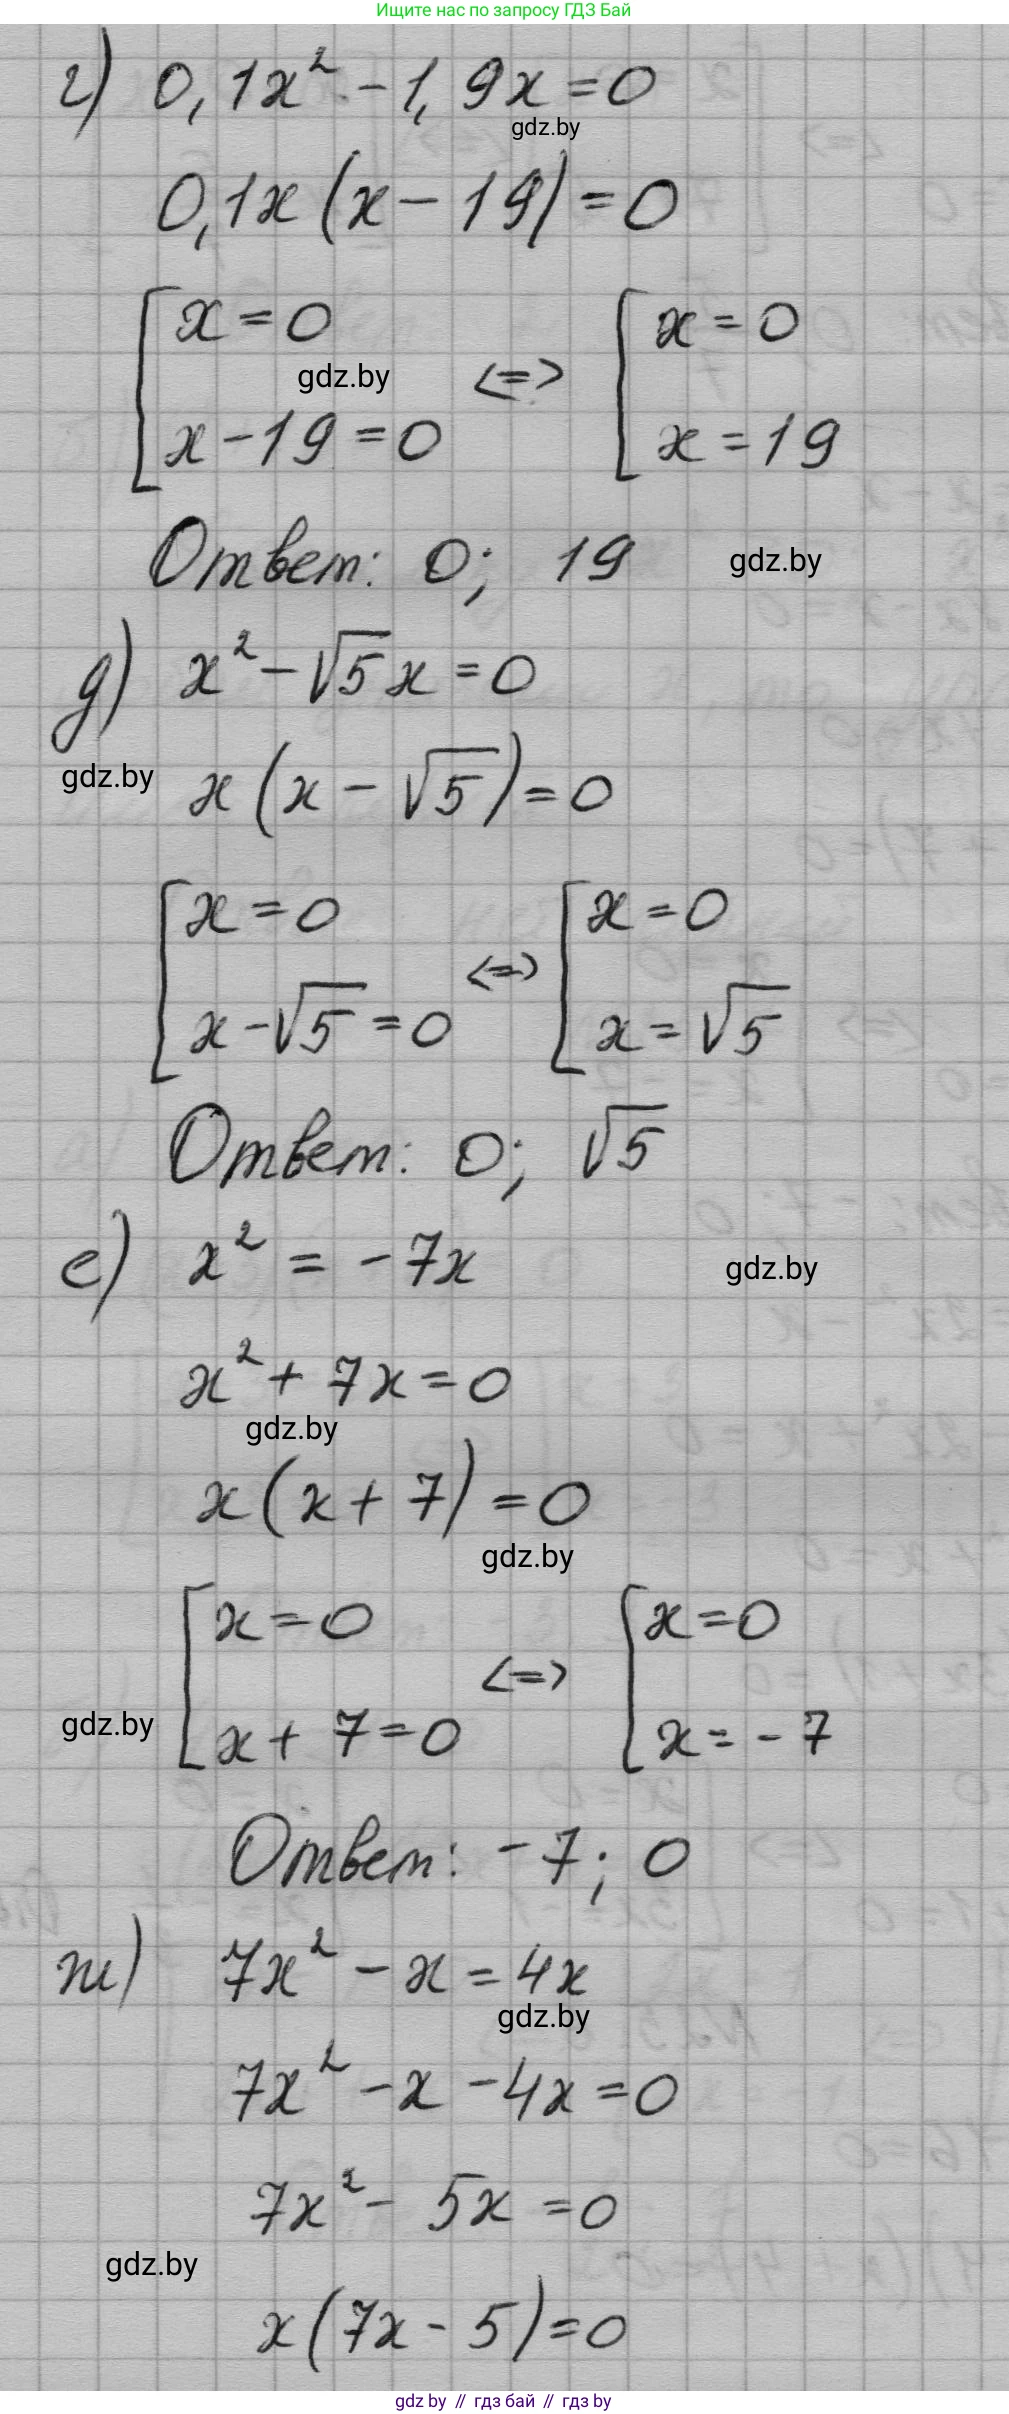 Ищите нас по запросу ГДЗ Бай
г) 0,1x² - 1,9x = 0
gdz.by
0,1x (x - 19) = 0
[ x = 0 <=> [ x = 0
gdz.by
x - 19 = 0 x = 19
Ответ: 0; 19 gdz.by
д) x² - √5x = 0
gdz.by
x (x - √5) = 0
[ x = 0 <=> [ x = 0
x - √5 = 0 x = √5
Ответ: 0; √5
е) x² = -7x
gdz.by
x² + 7x = 0
gdz.by
x (x + 7) = 0
gdz.by
[ x = 0 <=> [ x = 0
gdz.by
x + 7 = 0 x = -7
Ответ: -7; 0
ж) 7x² - x = 4x
gdz.by
7x² - x - 4x = 0
7x² - 5x = 0
gdz.by
x (7x - 5) = 0
gdz by // гдз бай // гдз by